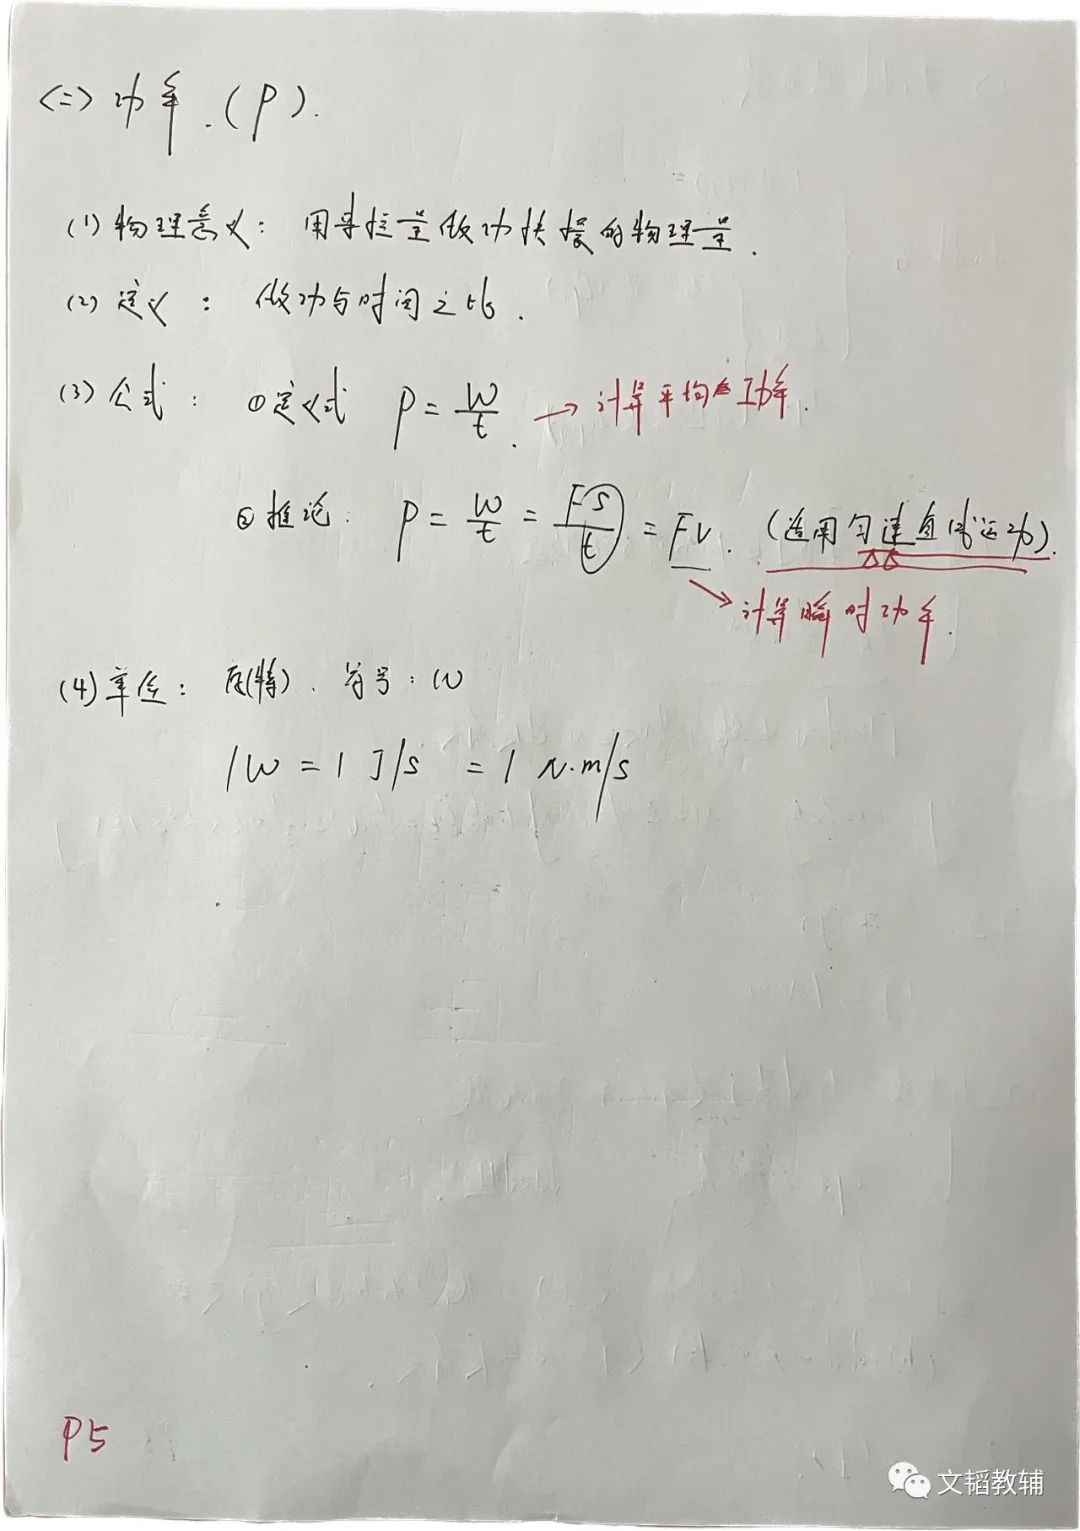 <二> 功率.(P).
(1) 物理意义: 用来描述做功快慢的物理量.
(2) 定义: 做功与时间之比.
(3) 公式: ①定义式 P = W/t. → 计算平均功率.
②推论: P = W/t = Fs/t = Fv. (适用匀速直线运动).
→ 计算瞬时功率.
(4) 单位: 瓦(特). 符号: W
1W = 1 J/s = 1 N·m/s
P5
文韬教辅